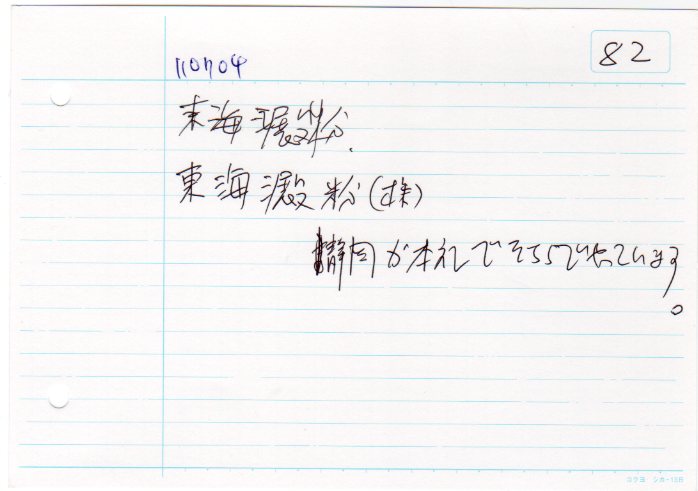 82
110704
東海澱粉.
東海澱粉(株)
静岡が本社でそちらでやっています
。
コクヨ シカ-13B